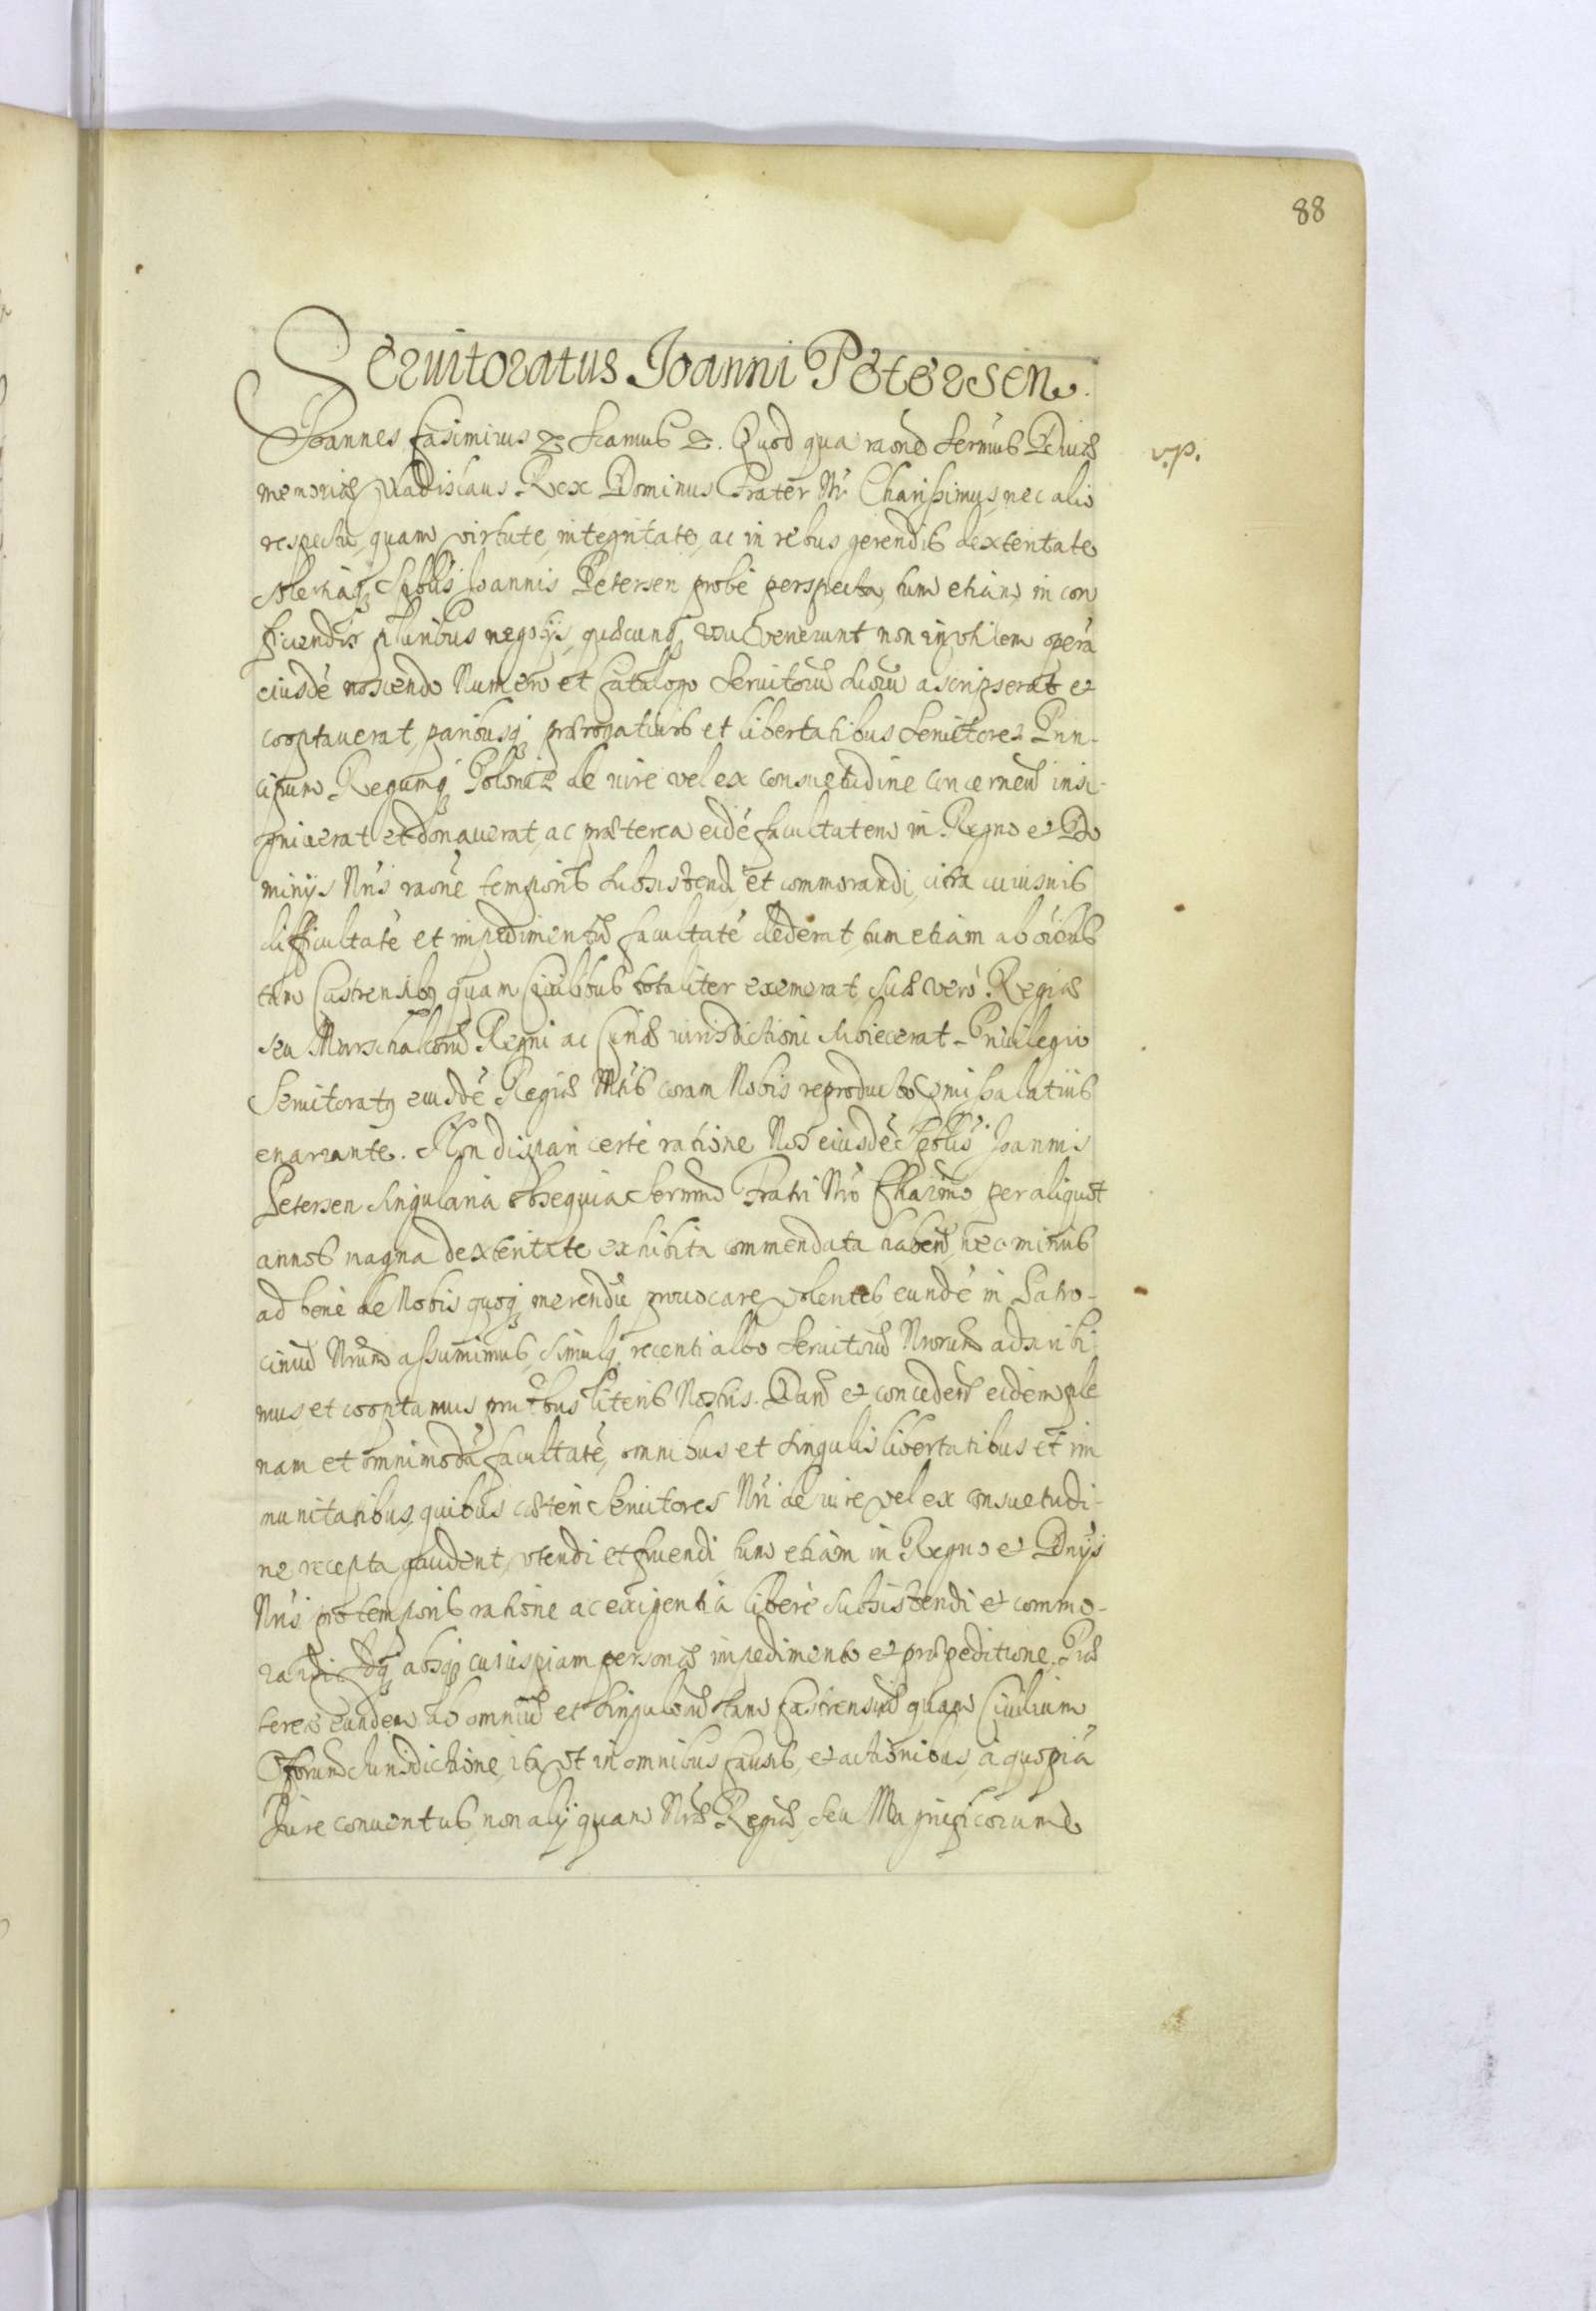 88
Seruitoratus Joanni Petersen.
Joannes Casimirus &c. Significamus &c. Quod qua raone Sermus Diuae
v.p.
memoriae Vladislaus Rex Dominus Frater Nr Charissimus, nec alio
respectu, quam virtute, integritate, ac in rebus gerendis dexteritate
solertiaq Spblis Joannis Petersen probe perspecta, tum etiam in con
ficiendis pluribus negotijs, quaecunq usu venerunt non invtilem operã
eiusdẽ noscendo Numero et Catalogo Seruitorũ suorũ ascripserat et
cooptauerat, paribusq praerogatiuis et libertatibus Seruitores Prin-
cipum Regumq Poloniae de iure vel ex consuetudine concernen insi-
gniuerat et donauerat, ac praeterea eidẽ facultatem in Regno et Do
minijs Nris raone temporis subsistendi et commorandi, citra cuiusuis
difficultatẽ et impedimentũ facultatẽ dederat, tum etiam ab oibus
tam Castrensibq quam Ciuilibus totaliter exemerat, Suae verò Regiae
seu Marschalcorũ Regni ac Curiae iurisdictioni subiecerat, Priuilegio
Seruitoratq eiusdẽ Regiae Mtis coram Nobis reproducto praemissa latius
enarrante. Non dispari certè ratione Nos eiusdẽ Spblis Joannis
Petersen singularia obsequia Sermo Fratri Nro Charmo per aliquot
annos magna dexteritate exhibita commendata haben, nec minus
ad bene de Nobis quoq merendũ prouocare volentes, eundẽ in Patro-
ciniũ Nrum assumimus, simulq recenti albo Seruitorũ Nrorum adscribi
mus, et cooptamus pntibus literis Nostris. Dan et conceden eidem ple
nam et omnimodã facultatẽ, omnibus et singulis libertatibus et im
munitatibus, quibus caeteri Seruitores Nri de iure vel ex consuetudi-
ne recepta gaudent, vtendi et fruendi, tum etiam in Regno et Dnijs
Nris pro temporis ratione ac exigentia liberè subsistendi et commo-
randi absq cuiuspiam personae impedimento et praepeditione. Prae
terea eundem ab omniũ et singulorũ tam Castrensiũ quam Ciuilium
Officiorum Iurisdictione, ita vt in omnibus causis, et actionibus, à quopiã
Jure conuentus, non alij quam Nrae Regiae, seu Magnificorum